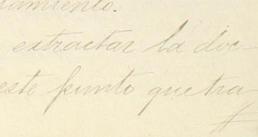 amiento.
extractar la doc-
este punto que tra-